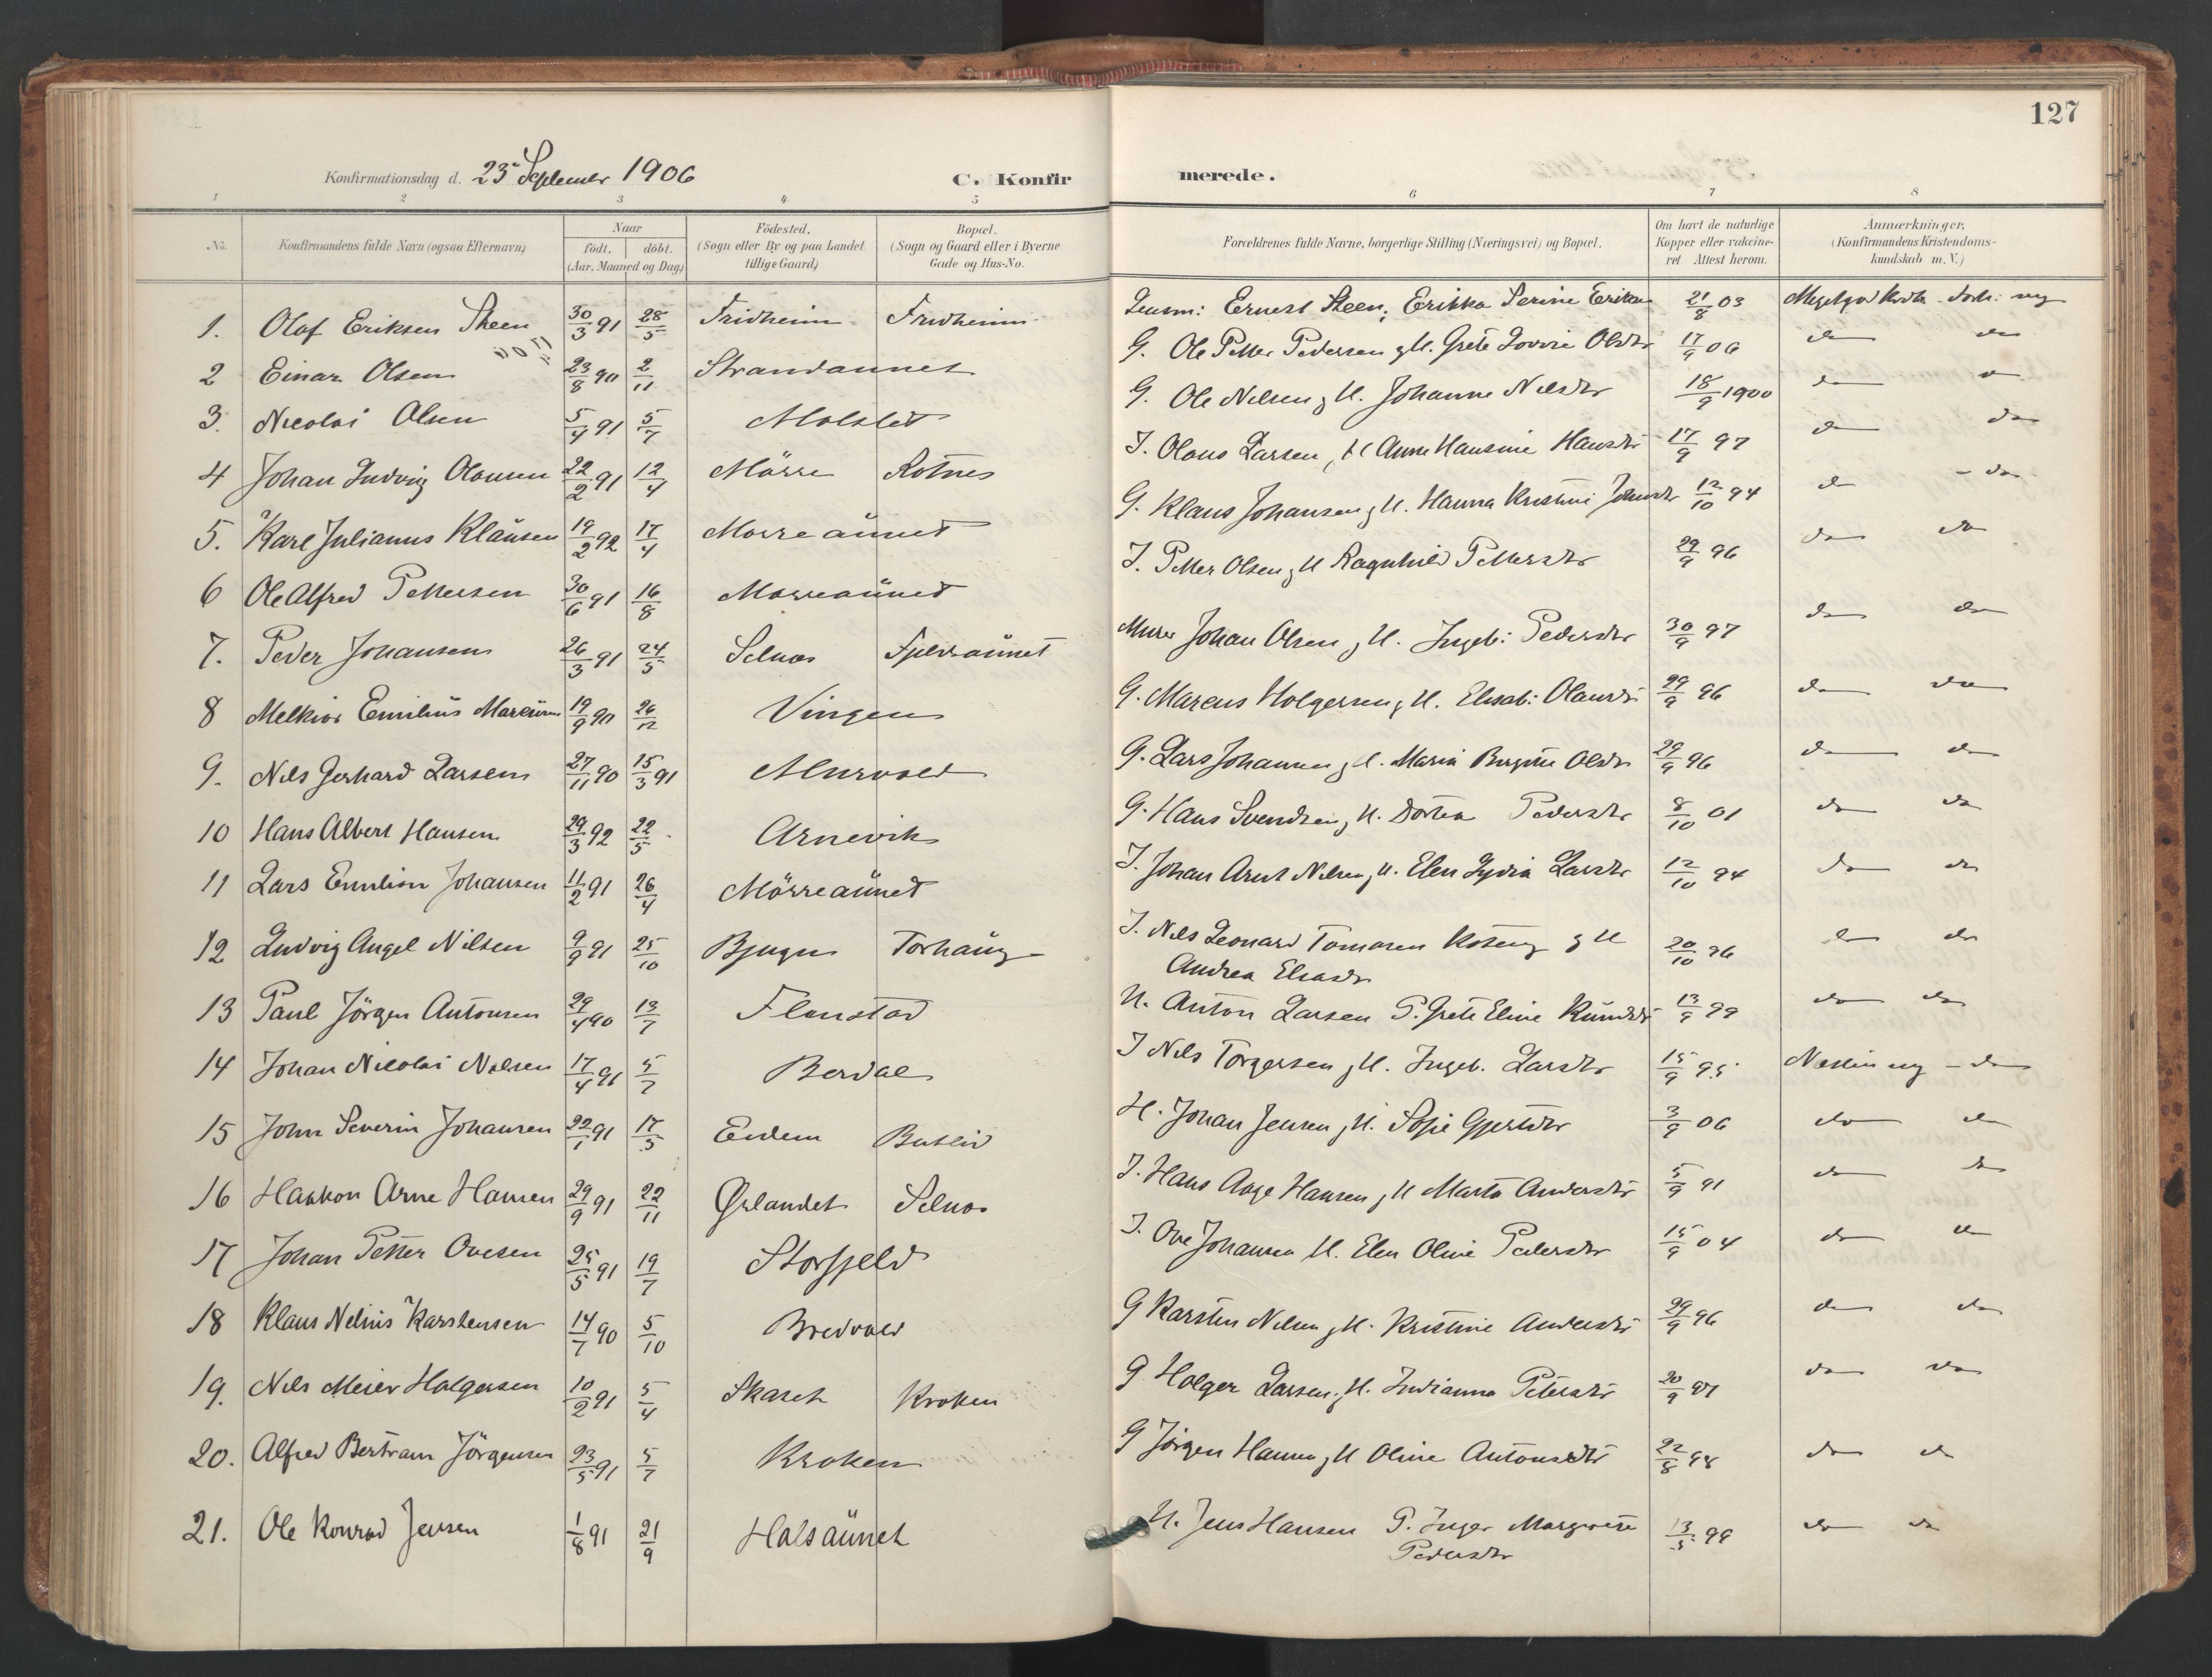 127
Konfirmationsdag d. 23 September 1906
C. Konfir merede.
1 2 3 4 5 6 7 8
No. Konfirmandens fulde Navn (ogsaa Efternavn) Naar födt. döbt. (Aar, Maaned og Dag.) Födested. (Sogn eller By og paa Landet tillige Gaard.) Bopæl. (Sogn og Gaard eller i Byerne Gade og Hus-No. Forældrenes fulde Navne, borgerlige Stilling (Næringsvei) og Bopæl. Om havt de naturlige Kopper eller vakcineret Attest herom. Anmærkninger, (Konfirmandens Kristendomskundskab m. V.)
1. Olaf Eriksen Steen 30/3 91 28/5 Fridheim Fridheim Ernest Steen, Erikka Serine 21/8 03
2 Einar Olsen 23/8 90 2/11 Strandaunet G. Ole Petter Pedersen g H. Grete Lovise Olsdtr 17/9 06 do do
3. Nicolai Olsen 5/4 91 5/7 Molslet G. Ole Nilsen g H. Johanne Nilsdtr 18/9 1900 do do
4 Johan Ludvig Olausen 22/2 91 12/4 Mörre Rotnes I. Olaus Larsen, H Anne Hansine Hansdtr 17/9 97 do do
5. Karl Julianus Klausen 19/2 92 17/4 Morreaunet G. Klaus Johansen g H. Hanna Kristine 12/10 94 do - do
6 Ole Alfred Pettersen 30/6 91 16/8 Morreaunet I. Petter Olsen g H Ragnhild Pettersdtr 29/9 96 do do
7. Peder Johansen 26/3 91 24/5 Selnes Murer Johan Olsen g H. Ingeb: Pedersdtr 30/9 97 do do
8 Melkior Emilius 19/9 90 26/12 Vingen G. Marcus Holgersen g H. Elisab: Olausdtr 29/9 96 do do
9. Nils Gerhard Larsen 27/11 90 15/3 91 Murvold G. Lars Johansen g H. Maria Birgitte Olsdtr 29/9 96 do do
10 Hans Albert Hansen 29/3 92 22/5 Arnevik G. Hans Svendsen g H. Dortea Pedersdtr 8/10 01 do do
11 Lars Emilion Johansen 11/2 91 26/4 Mörreaunet I. Johan Arnt Nilsen g H. Elen Lydia Larsdtr 12/10 94 do do
12 Ludvig Angel Nilsen 9/9 91 25/10 Bjugn Torhaug I. Nils Leonard Tomasen g H
Andrea Eliasdtr 20/10 96 do do
13 Paul Jörgen Antonsen 29/4 90 13/7 Flenstad U. Anton Larsen P. Grete Eline 13/9 99 do do
14 Johan Nicolai Nilsen 17/4 91 5/7 Berdal I Nils Torgersen g H. Ingeb. Larsdtr 15/9 95 do
15 John Severin Johansen 22/1 91 17/5 Butlid H. Johan Jensen g H. Sofie Gjertsdtr 3/9 06 do do
16 Haakon Arne Hansen 29/9 91 22/11 Ørlandet Selnes I. Hans Aage Hansen g H Marta Andersdtr 5/9 91 do do
17 Johan Petter Ovesen 25/5 91 19/7 Storfjeld I. Ove Johansen H. Elen Oline Pedersdtr 15/9 04 do do
18 Klaus Nelius Karstensen 14/7 90 5/10 Bredvold G Karsten Nilsen g H. Kristine Andersdtr 29/9 96 do do
19. Nils Meier Holgersen 10/2 91 5/4 Skaret Kroken G Holger Larsen g H. Indianna Petersdtr 30/9 97 do do
20. Alfred Bertram Jörgensen 23/5 91 5/7 Kroken G Jörgen Hansen g H Oline Antonsdtr 22/8 98 do do
21. Ole Konrad Jensen 1/8 91 21/9 Halsaunet U. Jens Hansen P. Inger Margrete
Pedersdtr 13/5 99 do do